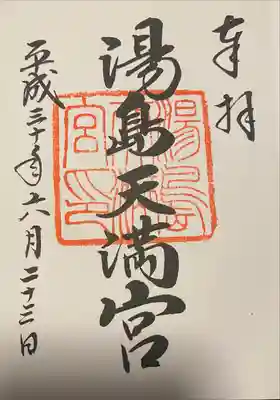 奉拝
湯島天満宮
平成三十年六月二十三日
湯島天満宮印